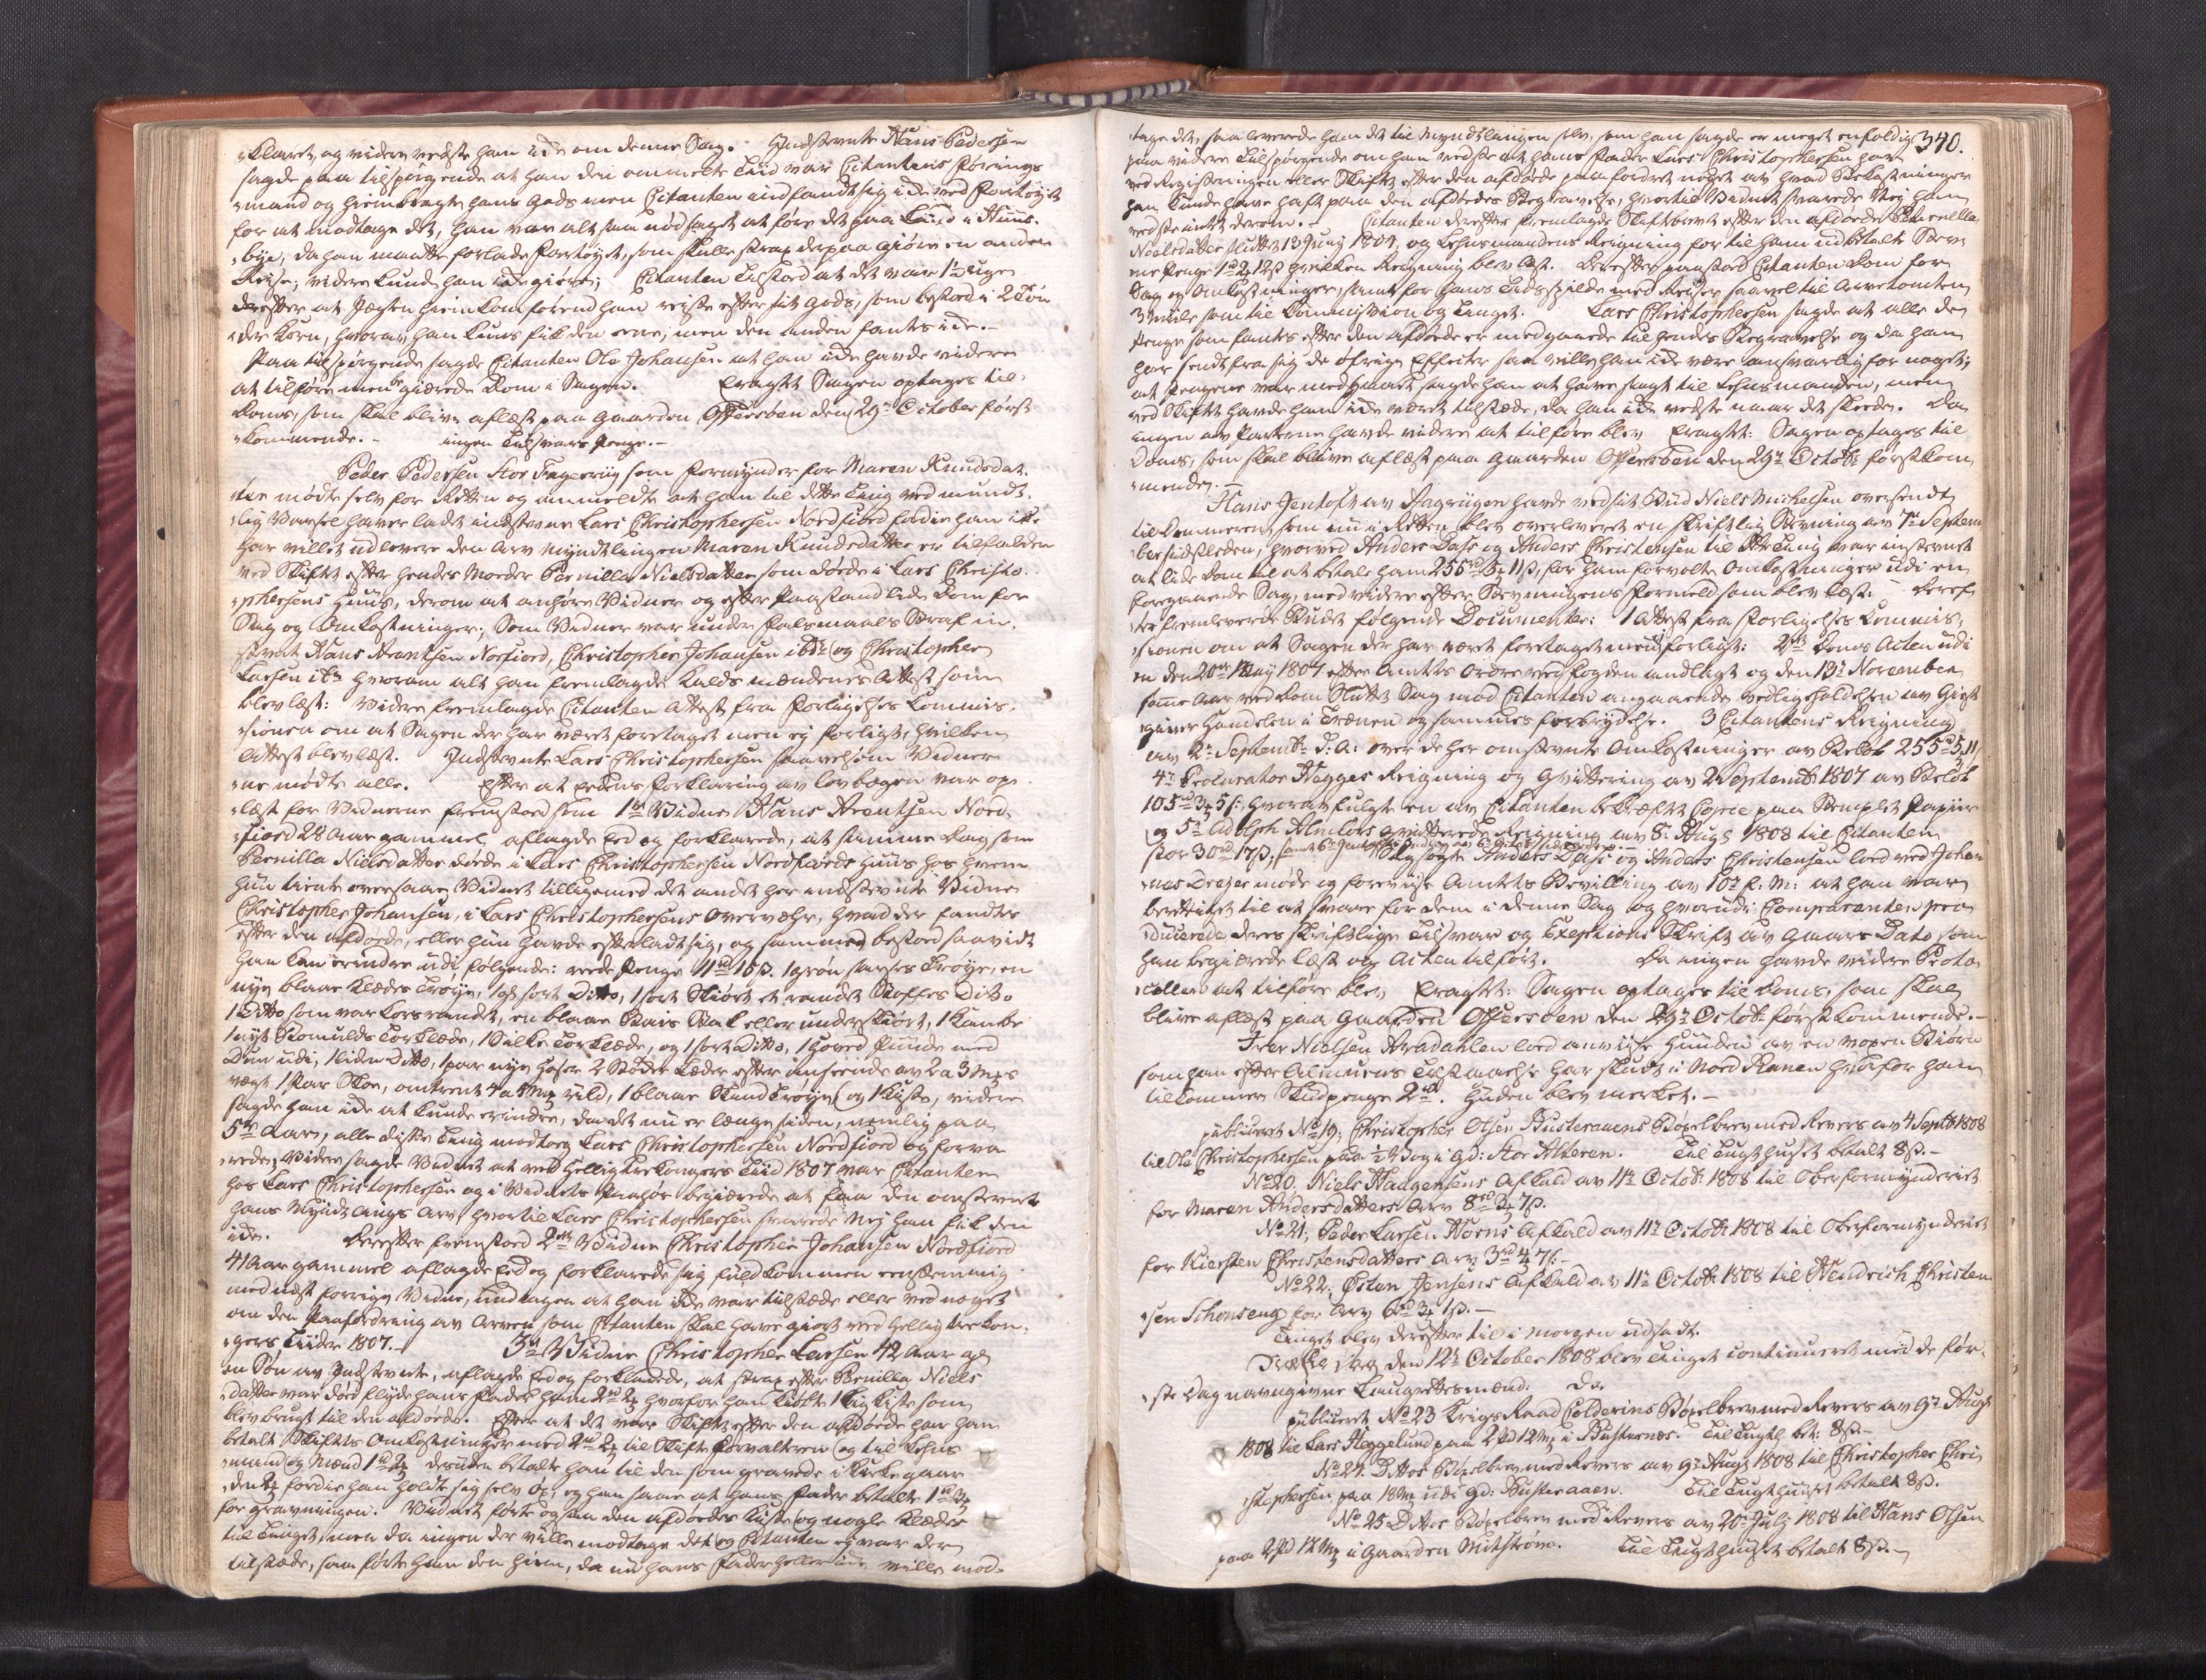 klaret, og videre vedste han icke om denne Sag. Indstevnte Hans Pedersen
sagde paa tilspørgende at han den ommelte Tiid var Citantens Førings-
mand og hiembragte hans gods men Citanten indfandt sig icke ved Fartøyet
for at modtage det, han var altsaa nødsaget at føre det paa Land i
bye, da han maatte forlade Fartøyet, som skulle strax derpaa giøre en anden
Reise; videre kunde han icke giøre; Citanten tilstoed at det var 1½ uge
derefter at Jægten hiemkom førend han reiste efter sit gods, som bestoed i 2 Tøn-
der Korn, hvoraf han kuns fik den eene, men den anden fantes icke.-
Paa tilspørgende sagde Citanten Ole Johansen at han icke havde videre
at tilføre men begiærede Dom i Sagen. Eragtet Sagen optages til
Doms, som skal blive aflæst paa gaarden Offersøen den 29de October først-
kommende.- ingen Tilsvars Penge.-
Peder Pedersen Stor Fageriig som Formynder for Maren Knudsdat-
ter mødte selv for Retten og anmeldte at han til dette Ting ved mundt-
lig Varsel haver ladet indstevne Lars Christophersen Nordfiord fordie han icke
har villet udlevere den Arv Myndtlingen Maren Knudsdatter er tilfalden
ved Skiftet efter hendes Moeder Pernilla Nielsdatter som døde i Lars Christo-
phersens Huus, derom at anhøre Vidner og efter Paastand lide Dom for
Sag og Omkostninger; Som Vidner var under Falsmaals Straf in-
stevnt Hans Arentsen Norfiord, Christopher Johansen ibd. og Christopher
Larsen ibd. hvorom alt han fremlagde Kaldsmændenes Attest som
blev læst: Videre fremlagde Citanten Attest fra Forligelses Commis-
sionen om at Sagen der har været foretaget men ej forligt, hvilken
Attest blev læst. Indstevnte Lars Christophersen saavelsom Vidner-
ne mødte alle. Efter at Eedens Forklaring av lovbogen var op-
læst for Vidnerne fremstoed som 1te Vidne Hans Arentsen Nord-
fiord 28 Aar gammel aflagde Eed og forklarede, at samme Dag som
Pernilla Nielsdatter døde i Lars Christophersen Nordfiords huus hos hvem
hun tiente oversaae Vidnet tilligemed det andet her indstevnte Vidne
Christopher Johansen, i Lars Christophersens Overværelse, hvad der fandtes
efter den afdøde, eller hun havde efterladt sig, og samme bestoed saavidt
han kan erindre udi følgende: rede Penge 11rd 15s. 1 grøn Trøye, en
nye blaae Klædes Trøye, 1 gl sort Ditto, 1 sort Skiørt et randet Stoffes Ditto
1 Ditto som var korsrandet, en blaae Bais Stak eller underskiørt, 1 Kaabe
1 nyt Bomulds Torklæde, 1 Silke Torklæde, og 1 sort Ditto, 1 hoved Puude med
Duun udi, 1 liden Ditto, 1 par nye hoser 2 Støcker Læder efter anseende av 2 a 3 mks
vægt 1 Par Skoe, omtrent 4 a 5 mk uld, 1 blaae Skind Trøye og 1 Kiste, videre
sagde han icke at kunde erindre, da det nu er længe siden, nemlig paa
5te Aar, alle disse Ting modtog Lars Christophersen Nordfiord og forva-
rede, Videre sagde Vidnet at ved Hellig tre Kongers Tiid 1807 var Citanten
hos Lars Christophersen og i Vidnets Paahør begiærede at faa den omstevnte
hans Myndtlings Arv hvortil Lars Christophersen svarede Nej han fik den
icke. Derefter fremstoed 2det Vidne Christopher Johansen Nordfiord
41 Aar gammel aflagde Eed og forklarede sig fuldkommen eenstemmig
med næst forrige Vidne, undtagen at han icke var tilstæde eller ved noget
om den Paafordring av Arven som Citanten skal have giort ved hellig tre Kon-
gers Tiider 1807.- 3die Vidne Christopher Larsen 42 Aar gl
en Søn av Indstevnte, aflagde Eed og forklarede, at strax efter Pernilla Niels-
datter var død flyede hans Fader ham 2rd 2 hvorfor han kiøbte 1 Liigkiste som
blev brugt til den afdøde. Efter at det var Skiftet efter den afdøde har han
betalt Skiftets Omkostninger med 2rd 2 til Skifte Forvalteren og til Lehns-
mand og Mænd 1rd 2 desuden betalte han til den som gravede i Kirkegaar-
den 2 fordie han holdte sig selv Øl, og han saae at hans Fader betalte 1rd 3
for gravningen. Vidnet førte ogsaa den afdødes Kiste og nogle Klæder
til Tinget, men da ingen der ville modtage det og Citanten ej var der
tilstæde, saa førte han den hiem, da nu hans Fader heller icke ville mod-
340.
tage det, saa leverede han det til Myndtlingen selv, som han sagde er meget enfoldig
paa videre Tilspørgende om han vedste at hans Fader Lars Christophersen har
ved Registeringen eller Skiftet efter den afdøde paafordret noget av hvad Bekostninger
han kunde have haft paa den afdødes Begravelse, hvortil Vidnet svarede Nej han
vedste intet derom.- Citanten derefter fremlagde Skiftebrevet efter den afdøde Pernilla
Nielsdatter sluttet 13 Juny 1804, og Lehnsmandens Reigning for til ham udbetalte Stev-
ne Penge 1rd 2 12s hvilken Reigning blev læst. Derefter paastod Citanten Dom for
Sag og Omkostninger, samt for hans Tidsspilde med Reiser saavel til Arvetomten
3 Mile som til Commission og Tinget. Lars Christophersen sagde at alle de
Penge som fantes efter den afdøde er medgaaede til hendes Begravelse og da han
har sendt fra sig de øfrige Effecter saa ville han icke være ansvarlig for noget;
at Pengene var medgaaet sagde han at have sagt til Lehnsmanden, men
ved Skiftet havde han icke været tilstæde, da han icke vedste naar det skeede. Da
ingen av Parterne havde videre at tilføre blev Eragtet: Sagen optages til
Doms, som skal blive aflæst paa gaarden Offersøen den 29de Octobr førstkom-
mende.-
Hans Jentoft av havde ved sit Bud Niels Michelsen oversendt
til Dommeren, som nu i Retten blev overleveret en skriftlig Stevning av 7de Septem-
ber sidstleden, hvorved Anders Dass og Anders Christensen til dette Ting var instevnet
at lide Dom til at betale ham 255rd 5 11s, for ham forvolte Omkostninger udi en
foregaaende Sag, med videre efter Stevningens Formeld som blev læst. Deref-
ter fremleverede Budet følgende Documenter: 1 Attest fra Forligelses Commis-
sionen om at Sagen der har været foretaget men ej forligt: 2det Doms Acten udi
en den 20de May 1807 efter Amtets Ordre ved Fogden anlagt og den 13de November
samme Aar ved Dom sluttet Sag mod Citanten angaaende vedligeholdelsen av Giest-
giver Handelen i Trænen og sammes forbrydelse. 3 Citantens Reigning
av 2de Septembr d. A. over de her omstevnte Omkostninger av Beløb 255rd 5 11
4de Procurator Hegges Reigning og Qvittering av 2 Septembr 1807 av Beløb
105rd 3 5s, hvoraf fulgte en av Citanten bekræftet Copie paa Stemplet Papiir
og 5te Adolph qvitterede Reigning av 8de Augs 1808 til Citanten
stor 30rd 17s; Anders Dass og Anders Christensen loed ved Johan-
nes Dreyer møde og foreviise Amtets Bevilling av 10de f. M. at han var
berettiget til at svare for dem i denne Sag og hvorudi Comparenten pro-
ducerede deres skriftlige Tilsvar og Exeptions Skrift av gaars Dato som
han begiærede læst og Acten tilført. Da ingen havde videre Proto-
collen at tilføre blev Eragtet: Sagen optages til Doms, som skal
blive aflæst paa gaarden Offersøen den 29de Octobr førstkommende.-
Iver Nielsen Aradahlen loed anviise Huuden av en voxen Biørn
som han efter Almuens Tilstaaelse har skudt i Nord Ranen hvorfor ham
tilkommer Skudpenge 2rd. Huden blev merket.-
publiceret No 19, Christopher Olsen Busteraaens Bøxelbrev med Revers av 4 Septbr 1808
til Ole Christophersen paa ½ Vog i gd: Stor Alteren. Til Tugthuset betalt 8s.-
No 20. Niels Haagensens Afkald av 11te Octobr 1808 til Oberformynderiet
for Maren Andersdatters Arv 8rd 2 7s.
No 21, Peder Larsen Horns Afkald av 11te Octobr 1808 til Oberformynderiet
for Kiersten Christensdatters Arv 3rd 4 7s.-
No 22, Østen Jensens Afkald av 11te Octobr 1808 til Hendrich Christen-
sen Schonseng for Arv 6rd 3 1s.-
Tinget blev derefter til i morgen udsadt.
Dag den 12te October 1808 blev Tinget continueret med de før-
ste Dag navngivne Laugrettesmænd. Da
publiceret No 23 Krigs Raad Colderins Bøxelbrev med Revers av 9de Augs
1808 til Lars Heggelund paa 2 Pd 12 mk i Busternes. Til Tugth. bet: 8s.-
No 24. Dittos Bøxelbrev med Revers av 9de Augs 1808 til Christopher Chri-
stophersen paa 18 mk udi gd: Busteraaen. Til Tugthuuset betalt 8s.
No 25 Dittos Bøxelbrev med Revers av 20de July 1808 til Hans Olsen
paa 2 Pd 12 mk i Gaarden Mitstrøm. Til Tugthuuset betalt 8s.-